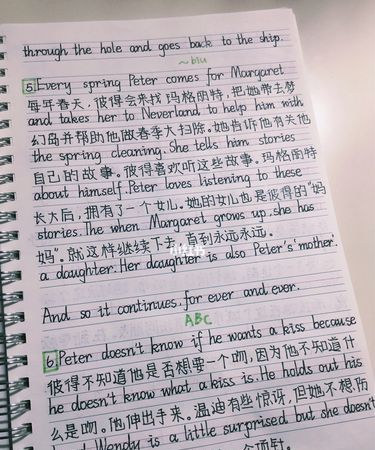 through the hole and goes back to the ship.
~blu
5 Every spring Peter comes for Margaret
每年春天，彼得会来找玛格丽特，把她带去梦
and takes her to Neverland to help him with
幻岛并帮助他做春季大扫除。她告诉他有关他
the spring cleaning. She tells him stories
自己的故事。彼得喜欢听这些故事。玛格丽特
about himself. Peter loves listening to these
长大后，拥有了一个女儿。她的女儿也是彼得的“妈
stories. The when Margaret grows up, she has
妈”。就这样继续下去，直到永远永远。
a daughter. Her daughter is also Peter's 'mother'.
And so it continues, for ever and ever.
ABC
6 Peter doesn't know if he wants a kiss because
彼得不知道他是否想要一个吻，因为他不知道什
he doesn't know what a kiss is. He holds out his
么是吻。他伸出手来。温迪有些惊讶，但她不想伤
Wendy is a little surprised but she doesn't